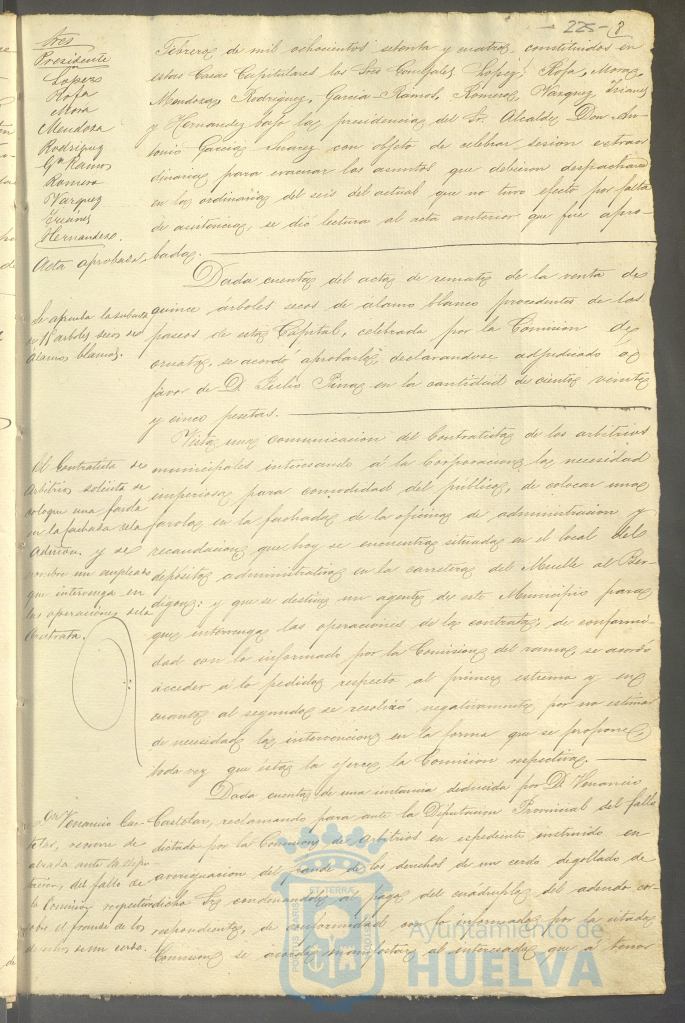 225- 8
tres
Presidente
Lopez
Rofa
Mora
Mendoza
Rodriguez
Gª Ramos
Romero
Vazquez
Hernandez.
Acta aprobada.
Febrero de mil ochocientos setenta y cuatro, constituidos en
estas Casas Capitulares los Sres Concejales Lopez, Rofa, Mora,
Mendoza, Rodriguez, Garcia-Ramos, Romero, Vazquez,
y Hernandez bajo la presidencia del Sr. Alcalde, Don An-
tonio Garcia Juarez con objeto de celebrar sesion extraor
dinaria para evacuar los asuntos que debieron despacharse
en la ordinaria del seis del actual que no tuvo efecto por falta
de asistencia, se dió lectura al acta anterior que fue apro-
bada.
Se aprueba la subasta
de 15 arboles secos de
alamos blancos.
Dada cuenta del acta de remate de la venta de
quince árboles secos de alamo blanco procedentes de los
paseos de esta Capital, celebrada por la Comision de
ornato, se acordo aprobarla declarandose adjudicado á
favor de D. Julio Pena en la cantidad de ciento veinte
y cinco pesetas.
El Contratista de
Arbitrios solicita se
coloque una farola
en la fachada de la
Admon. y se
nombre un empleado
que intervenga en
las operaciones de la
Contrata.
Vista una comunicacion del Contratista de los arbitrios
municipales interesando á la Corporacion la necesidad
imperiosa para comodidad del público, de colocar una
farola en la fachada de la oficina de administracion y
recaudacion que hoy se encuentra situada en el local del
depósito administrativo en la carretera del Muelle al Ber-
digon: y que se destine un agente de este Municipio para
que intervenga las operaciones de la contrata, de conformi-
dad con lo informado por la Comision del ramo, se acordó
acceder á lo pedido respecto al primer estremo y en
cuanto al segundo se resolvió negativamente por no estimar
de necesidad la intervencion en la forma que se propone
toda vez que ésta la ejerce la Comision respectiva.
Dn Venancio Cas-
telar, recurre de
alzada ante la Dipu-
tacion, del fallo de
la Comision respectiva
sobre el fraude de los
derechos de un cerdo.
Dada cuenta de una instancia deducida por D. Venancio
Castelar, reclamando para ante la Diputacion Provincial del fallo
dictado por la Comision de Arbitrios en espediente instruido en
averiguacion del fraude de los derechos de un cerdo degollado de
dicho Sr condenandole al pago del cuadruplo del adeudo cor-
respondiente, de conformidad con lo informado por la citada
Comision se acordó manifestar al interesado que á tenor
Ayuntamiento de
HUELVA